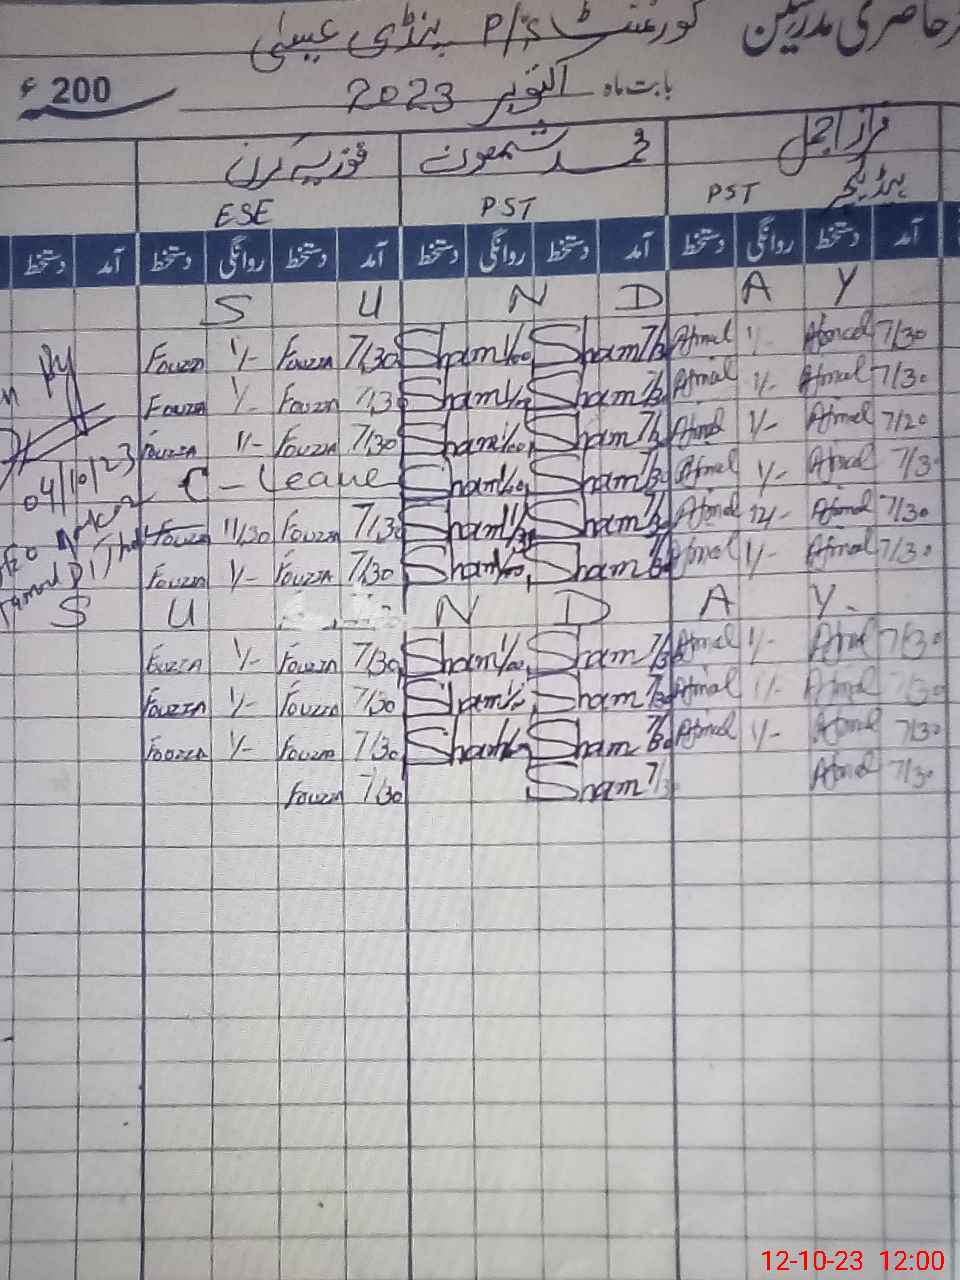 حاضری مدرسین گورنمنٹ P/S پنڈی عیسیٰ
200ء بابت ماہ اکتوبر 2023
فراز اجمل محمد شمعون فوزیہ کرن
PST ہیڈ ٹیچر PST ESE
آمد دستخط روانگی دستخط آمد دستخط روانگی دستخط آمد دستخط روانگی دستخط آمد دستخط
S U N D A Y
Fouzia 1/- Fouzia 7/30 Sham 1/00 Sham 7/30 Ajmal 1/- Ajmal 7/30
Fouzia 1/- Fouzia 7/30 Sham 1/00 Sham 7/30 Ajmal 1/- Ajmal 7/30
Fouzia 1/- Fouzia 7/30 Sham 1/00 Sham 7/30 Ajmal 1/- Ajmal 7/20
04/10/23 C - Leave Sham 1/00 Sham 7/30 Ajmal 1/- Ajmal 7/30
Fouzia 11/30 Fouzia 7/30 Sham 11/30 Sham 7/30 Ajmal 12/- Ajmal 7/30
Fouzia 1/- Fouzia 7/30 Sham 1/00 Sham 7/30 Ajmal 1/- Ajmal 7/30
S U N D A Y
Fouzia 1/- Fouzia 7/30 Sham 1/00 Sham 7/30 Ajmal 1/- Ajmal 7/30
Fouzia 1/- Fouzia 7/30 Sham 1/- Sham 7/30 Ajmal 1/- Ajmal 7/30
Fouzia 1/- Fouzia 7/30 Sham 1/- Sham 7/30 Ajmal 1/- Ajmal 7/30
Fouzia 7/30 Sham 7/30 Ajmal 7/30
12-10-23 12:00